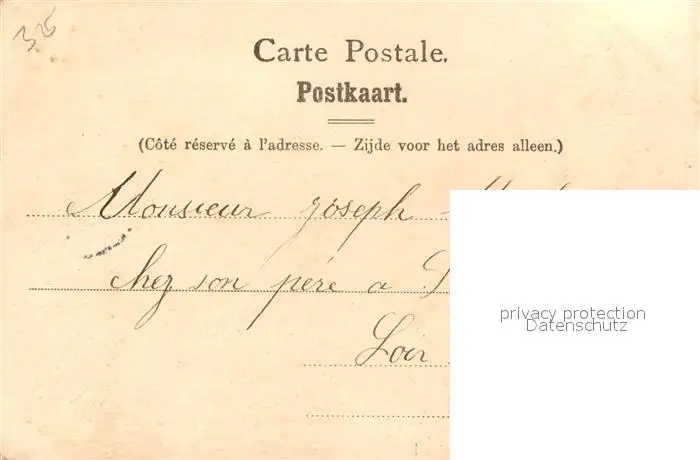 35
Carte Postale.
Postkaart.
(Côté réservé à l'adresse. — Zijde voor het adres alleen.)
Monsieur joseph
chez son père a
Loir
privacy protection
Datenschutz